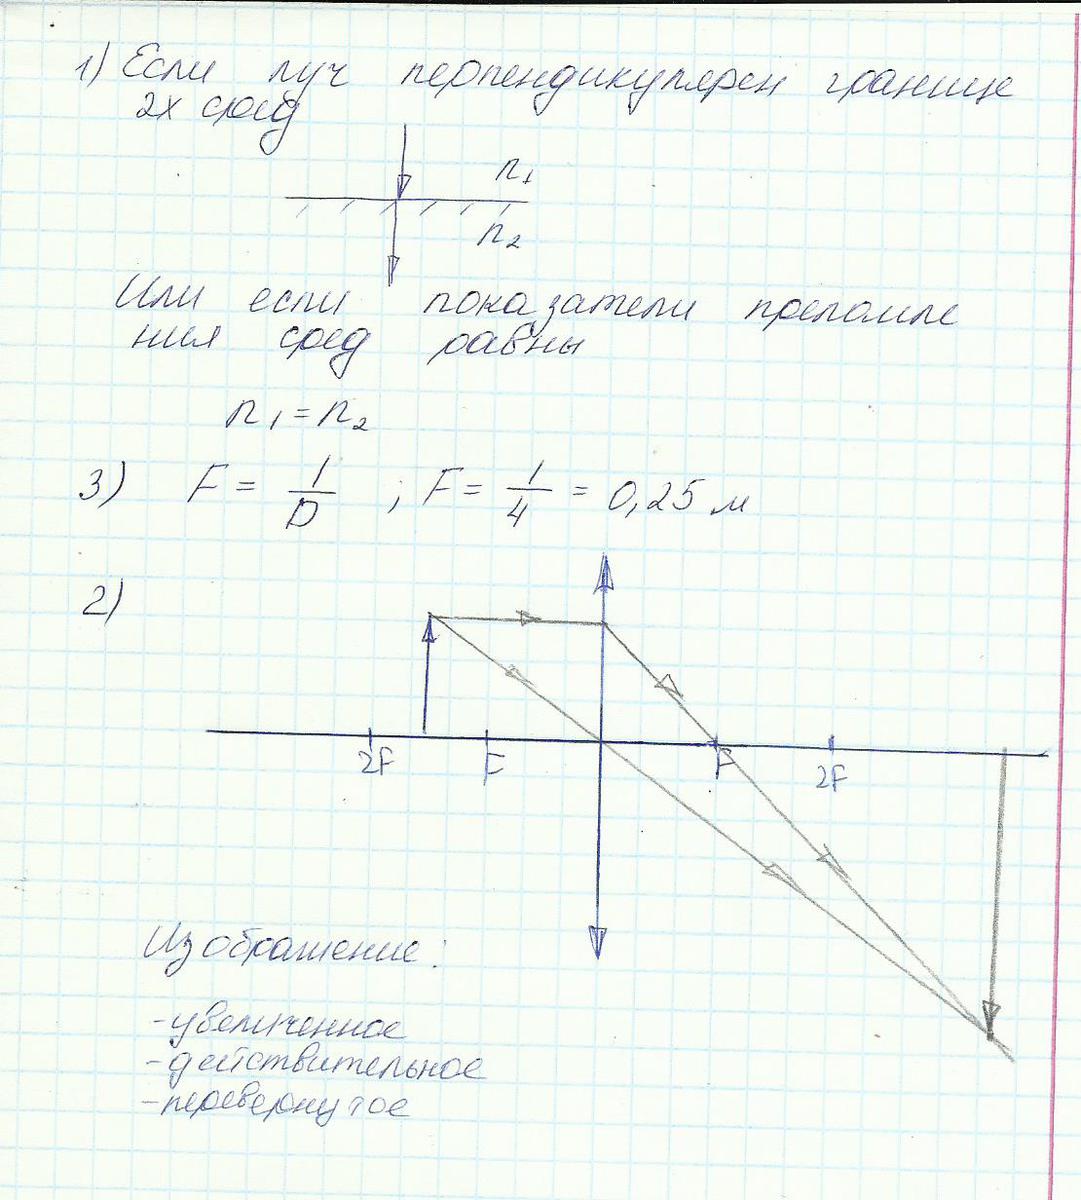 1) Если луч перпендикулярен границе
2х сред
n₁
n₂
Или если показатели преломле
ния сред равны
n₁ = n₂
3) F = 1/D ; F = 1/4 = 0,25 м
2)
2F F F 2F
Изображение:
- увеличенное
- действительное
- перевернутое